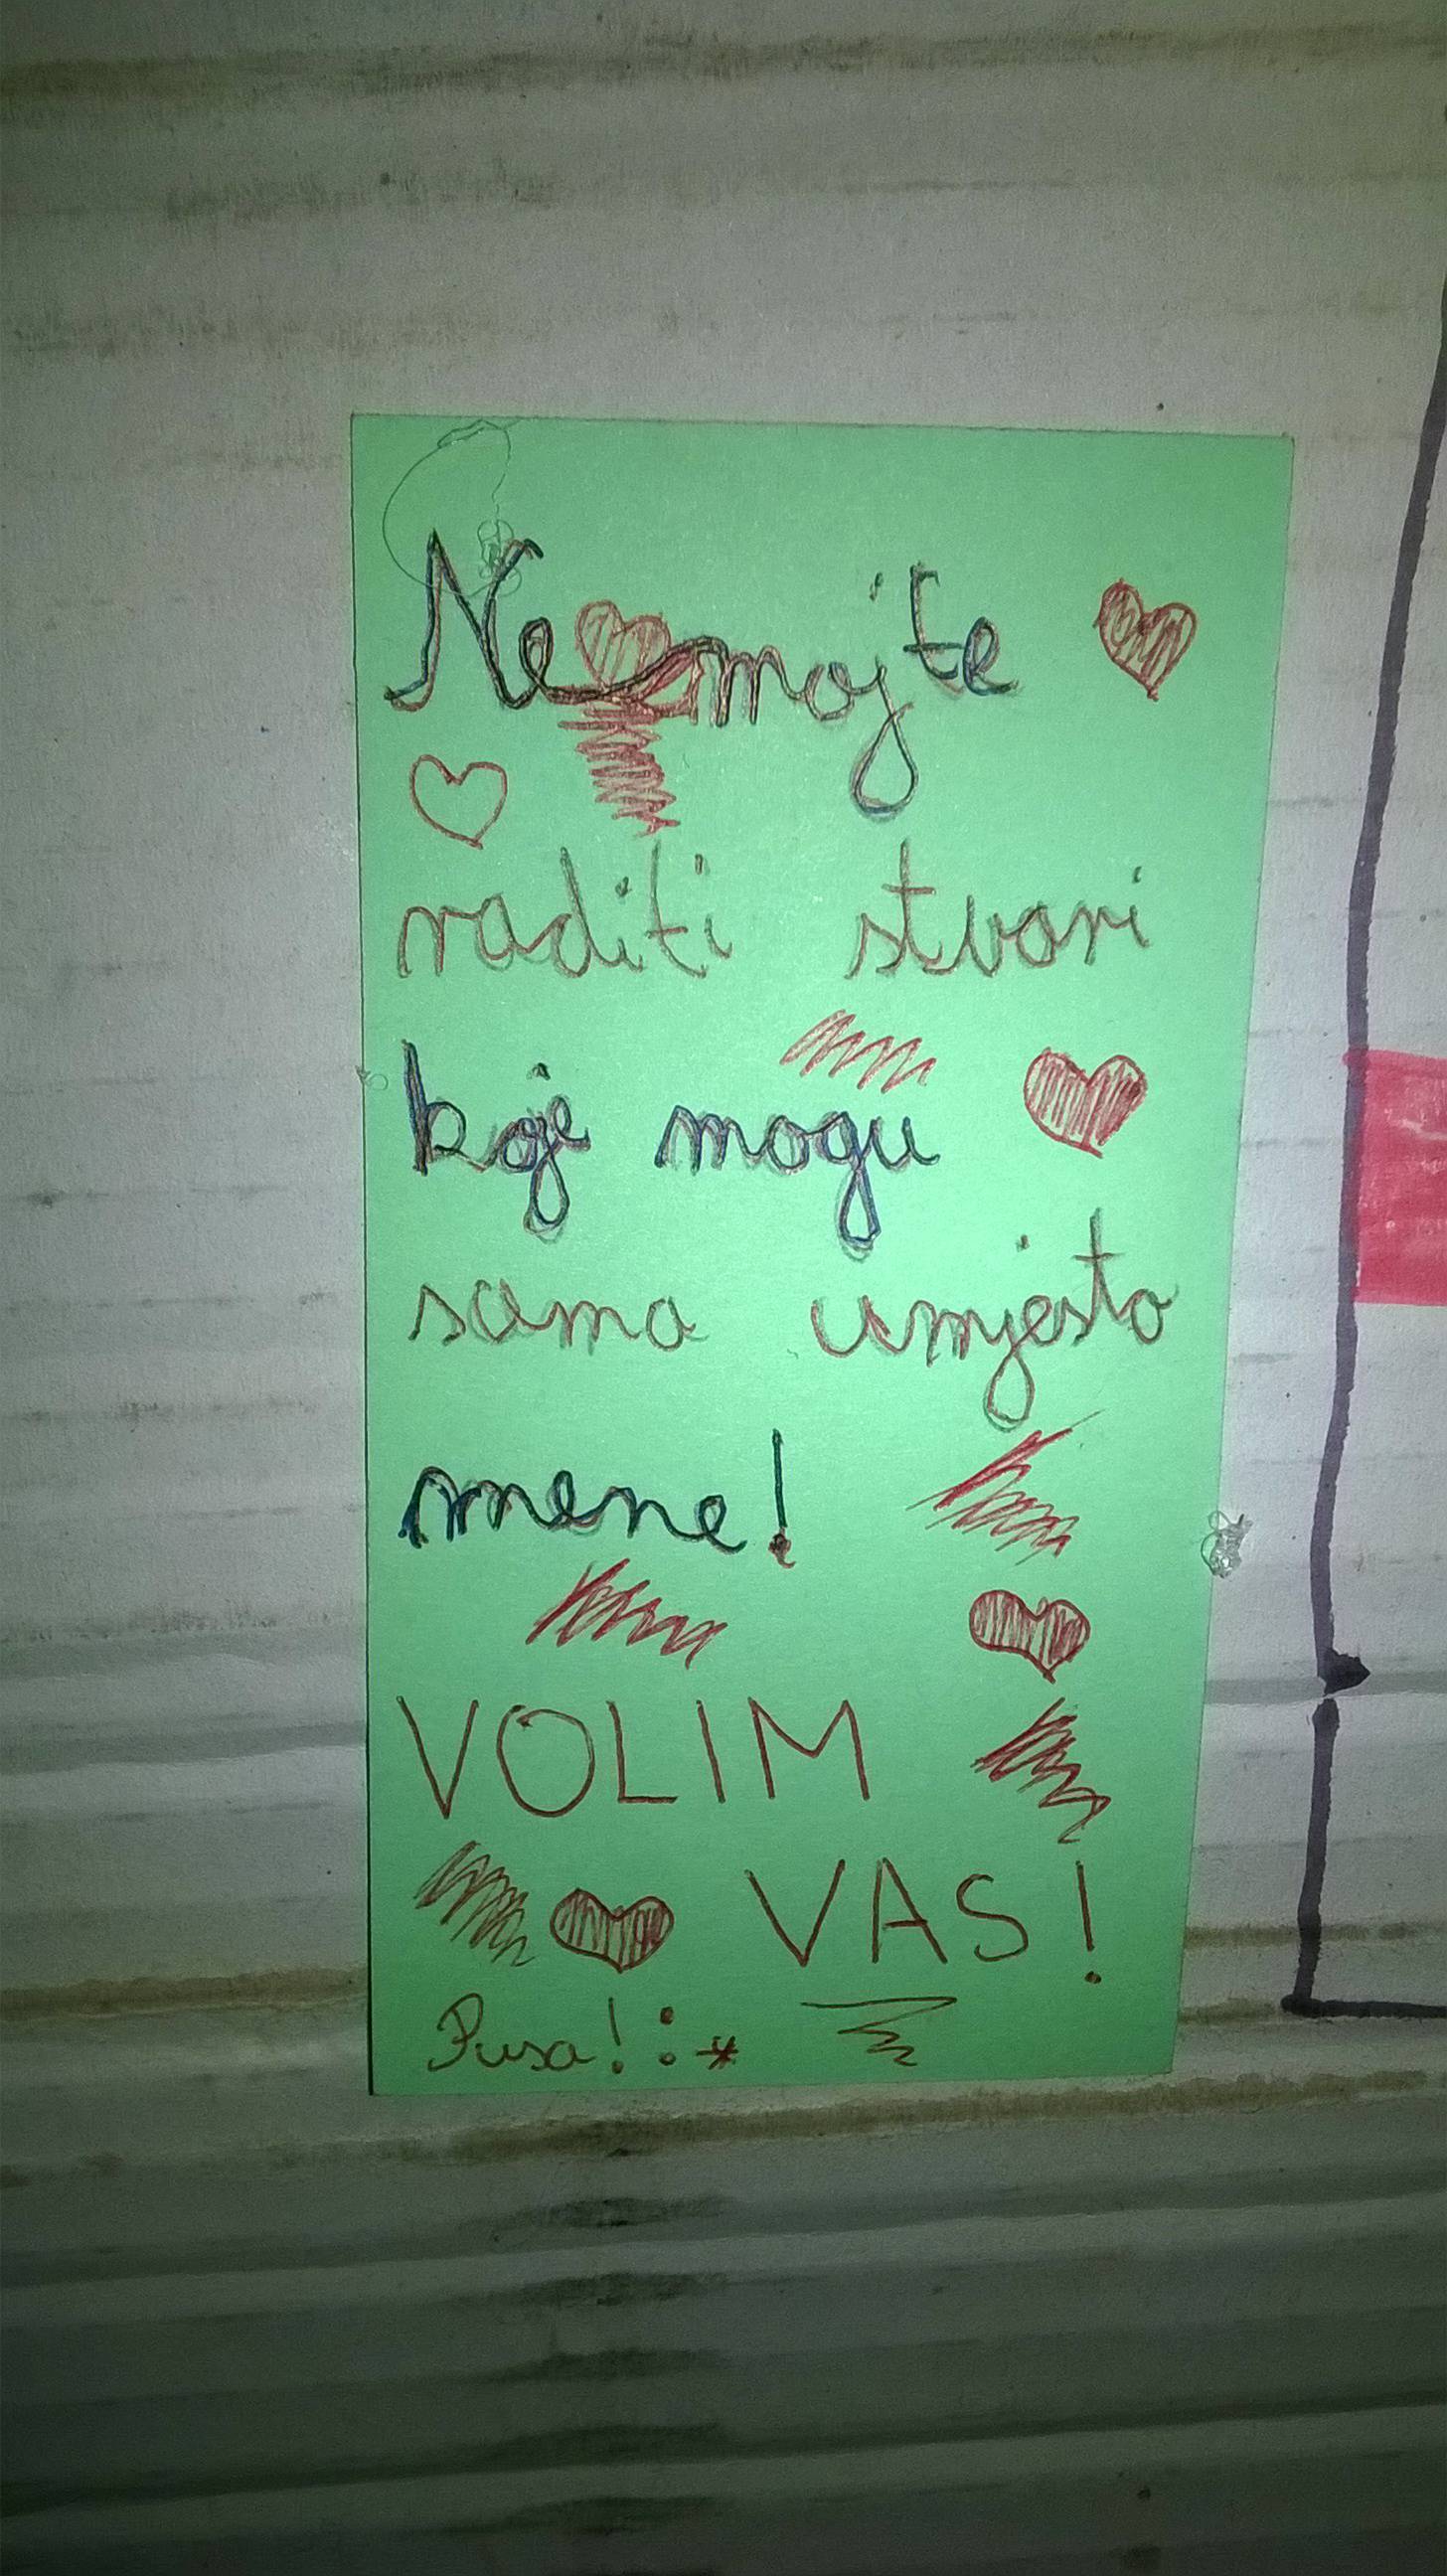 Nemojte
raditi stvari
koje mogu
sama umjesto
mene!
VOLIM
VAS!
Pusa! :*